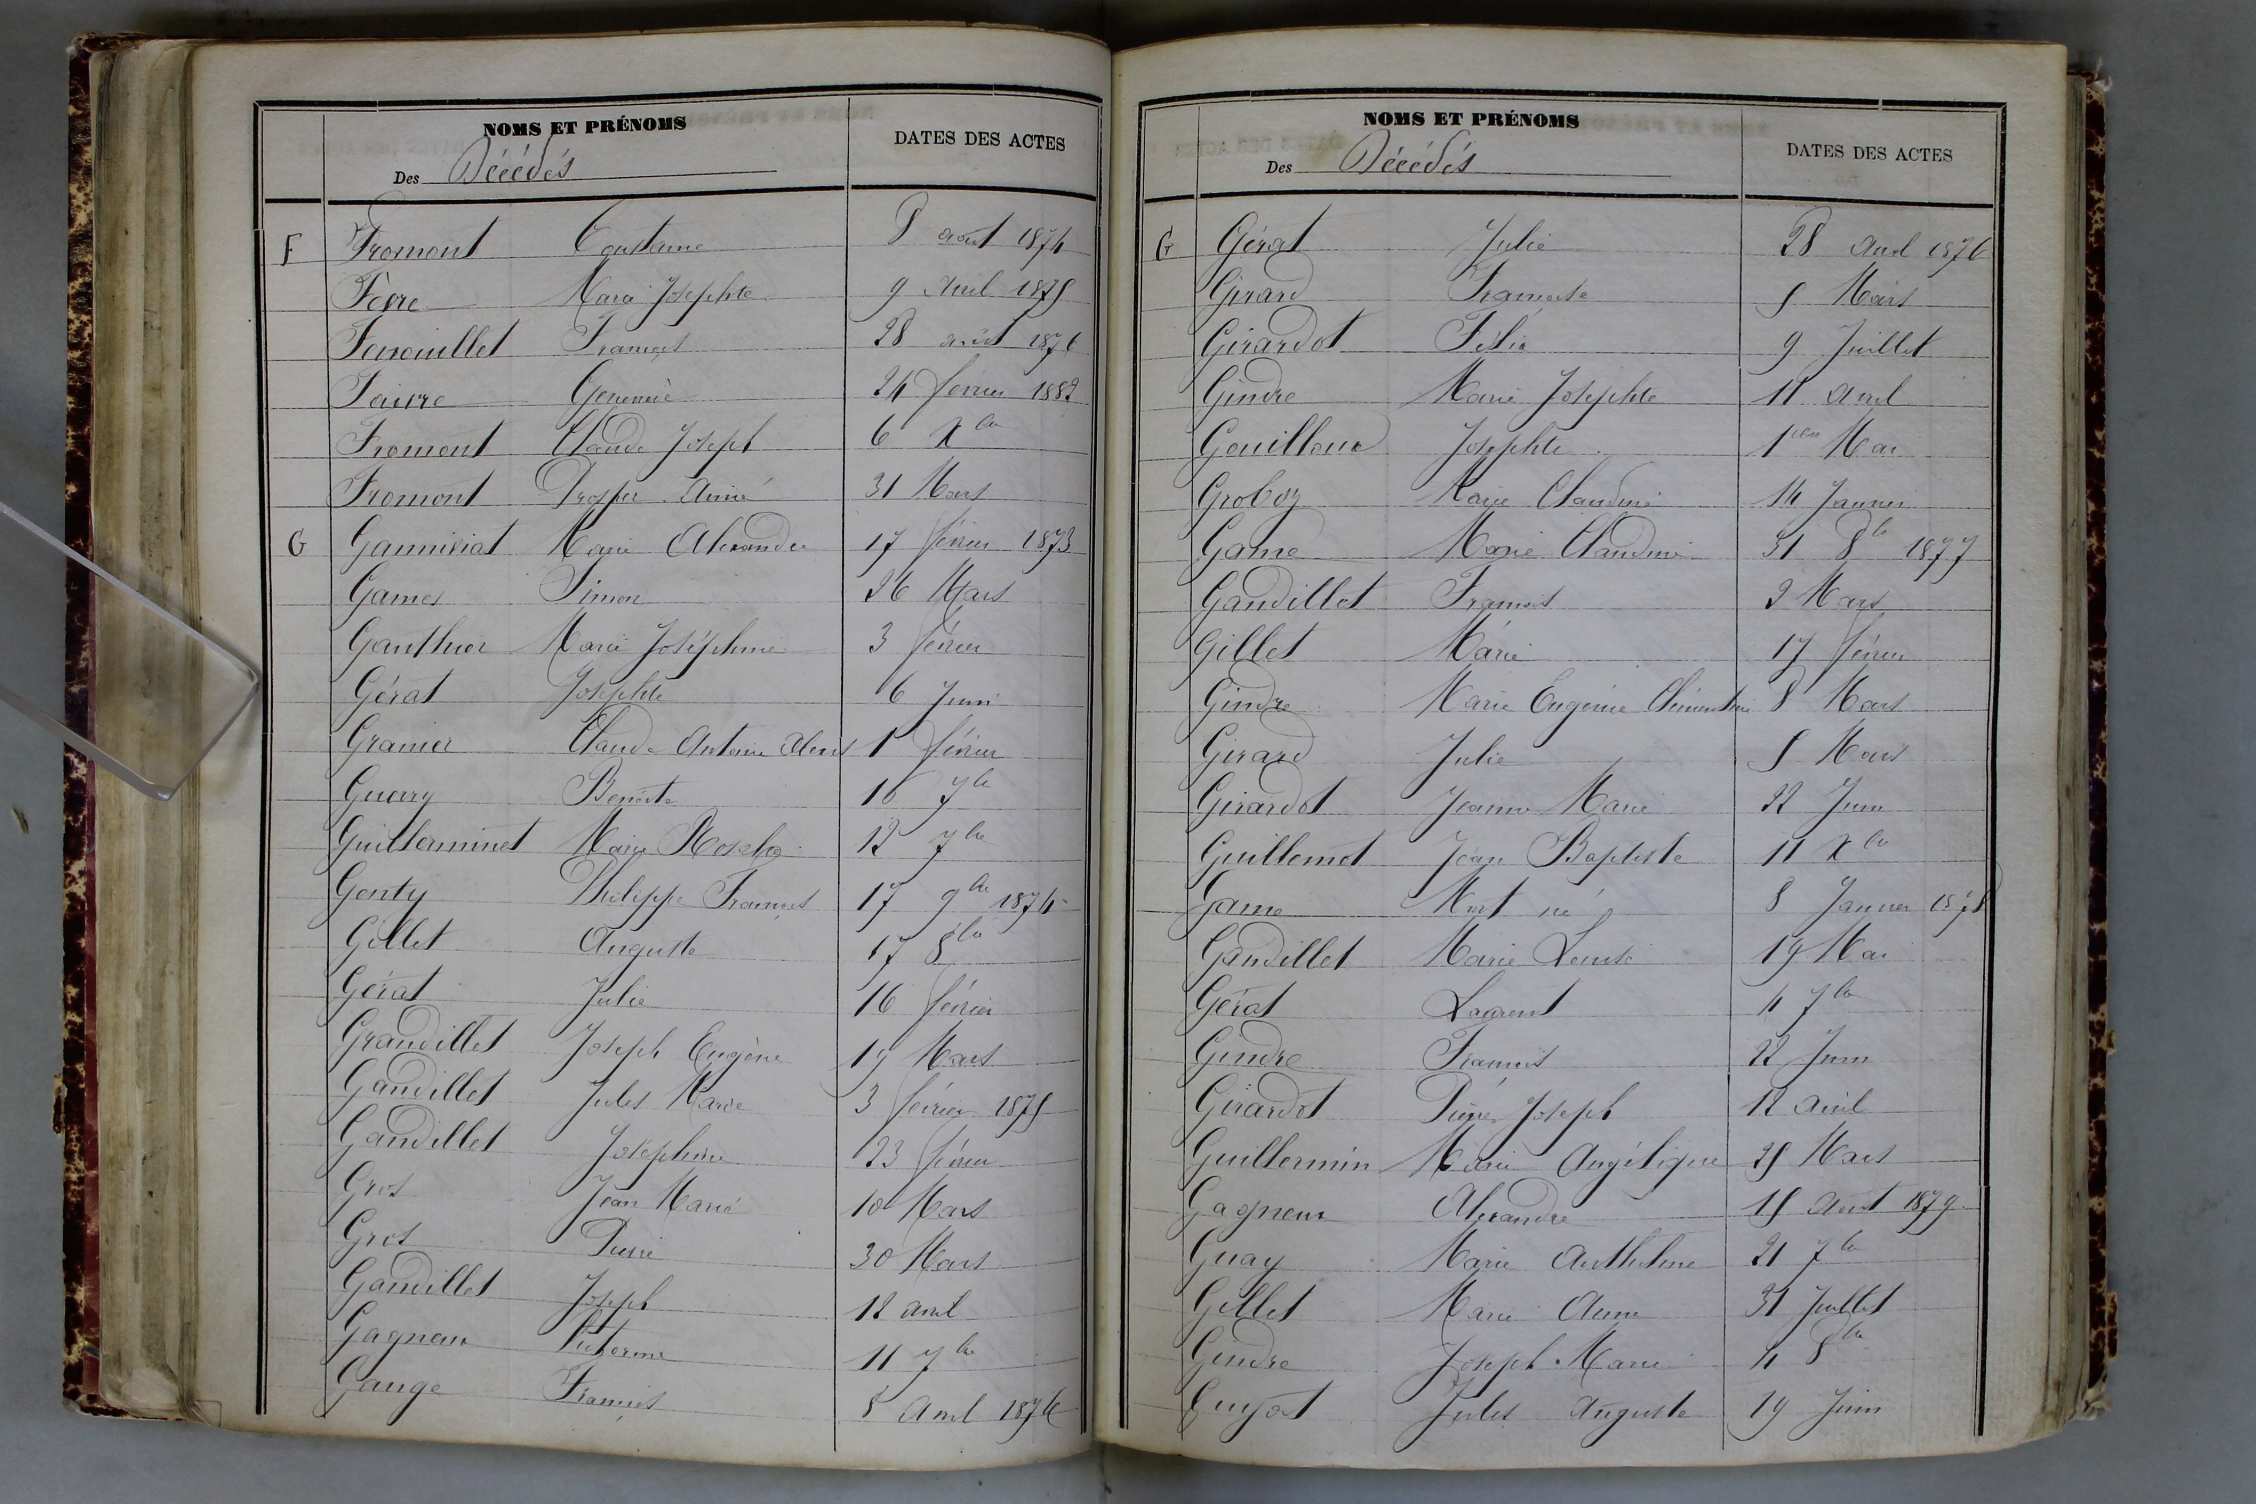 NOMS ET PRÉNOMS
DATES DES ACTES
Des Décédés
F Fromont Constance 8 août 1874
Fèvre Marie Josephte 9 Avril 1875
Fenouillet François 28 août 1876
Faivre Geneviève 24 février 1882
Fromont Claude Joseph 6 Xbre
Fromont Prosper Aimé 31 Mars
G Marie Alexandre 17 février 1873
Games Simon 26 Mars
Ganthier Marie Joséphine 3 février
Gérat Josephte 6 Juin
Granier Claude Antoine Alexis 1 février
Benoite 16 7bre
Guillerminet Marie 12 7bre
Genty Philippe François 17 9bre 1874
Gillet Auguste 17 8bre
Gérat Julie 16 février
Grandillet Joseph Eugène 19 Mars
Gandillet Jules Marie 3 février 1875
Gandillet Joséphine 23 février
Gros Jean Marie 10 Mars
Gros Pierre 30 Mars
Gandillet Joseph 12 avril
Gagneur Victorine 11 7bre
Gauge François 5 Avril 1876
NOMS ET PRÉNOMS
DATES DES ACTES
Des Décédés
G Gérat Julie 28 Avril 1876
Girard Françoise 5 Mars
Girardot Félix 9 Juillet
Gindre Marie Josephte 11 Avril
Gouilloux Josephte 1er Mai
Groboz Marie Claudine 14 Janvier
Game Marie Claudine 31 8bre 1877
Gandillet François 2 Mars
Gillet Marie 17 février
Gindre Marie Eugénie Clémentine 8 Mars
Girard Julie 5 Mars
Girardot Jeanne Marie 22 Juin
Guillemot Jean Baptiste 11 Xbre
Game Mort né 8 Janvier 1878
Gandillet Marie Louise 19 Mai
Gérat Laurent 4 7bre
Gindre François 22 Juin
Girardot Pierre Joseph 12 avril
Guillermin Marie Angélique 25 Mars
Gagneur Alexandre 15 Août 1879
Guay Marie Anthelme 21 7bre
Gillet Marie Anne 31 Juillet
Gindre Joseph Marie 4 8bre
Guyot Jules Auguste 19 Juin